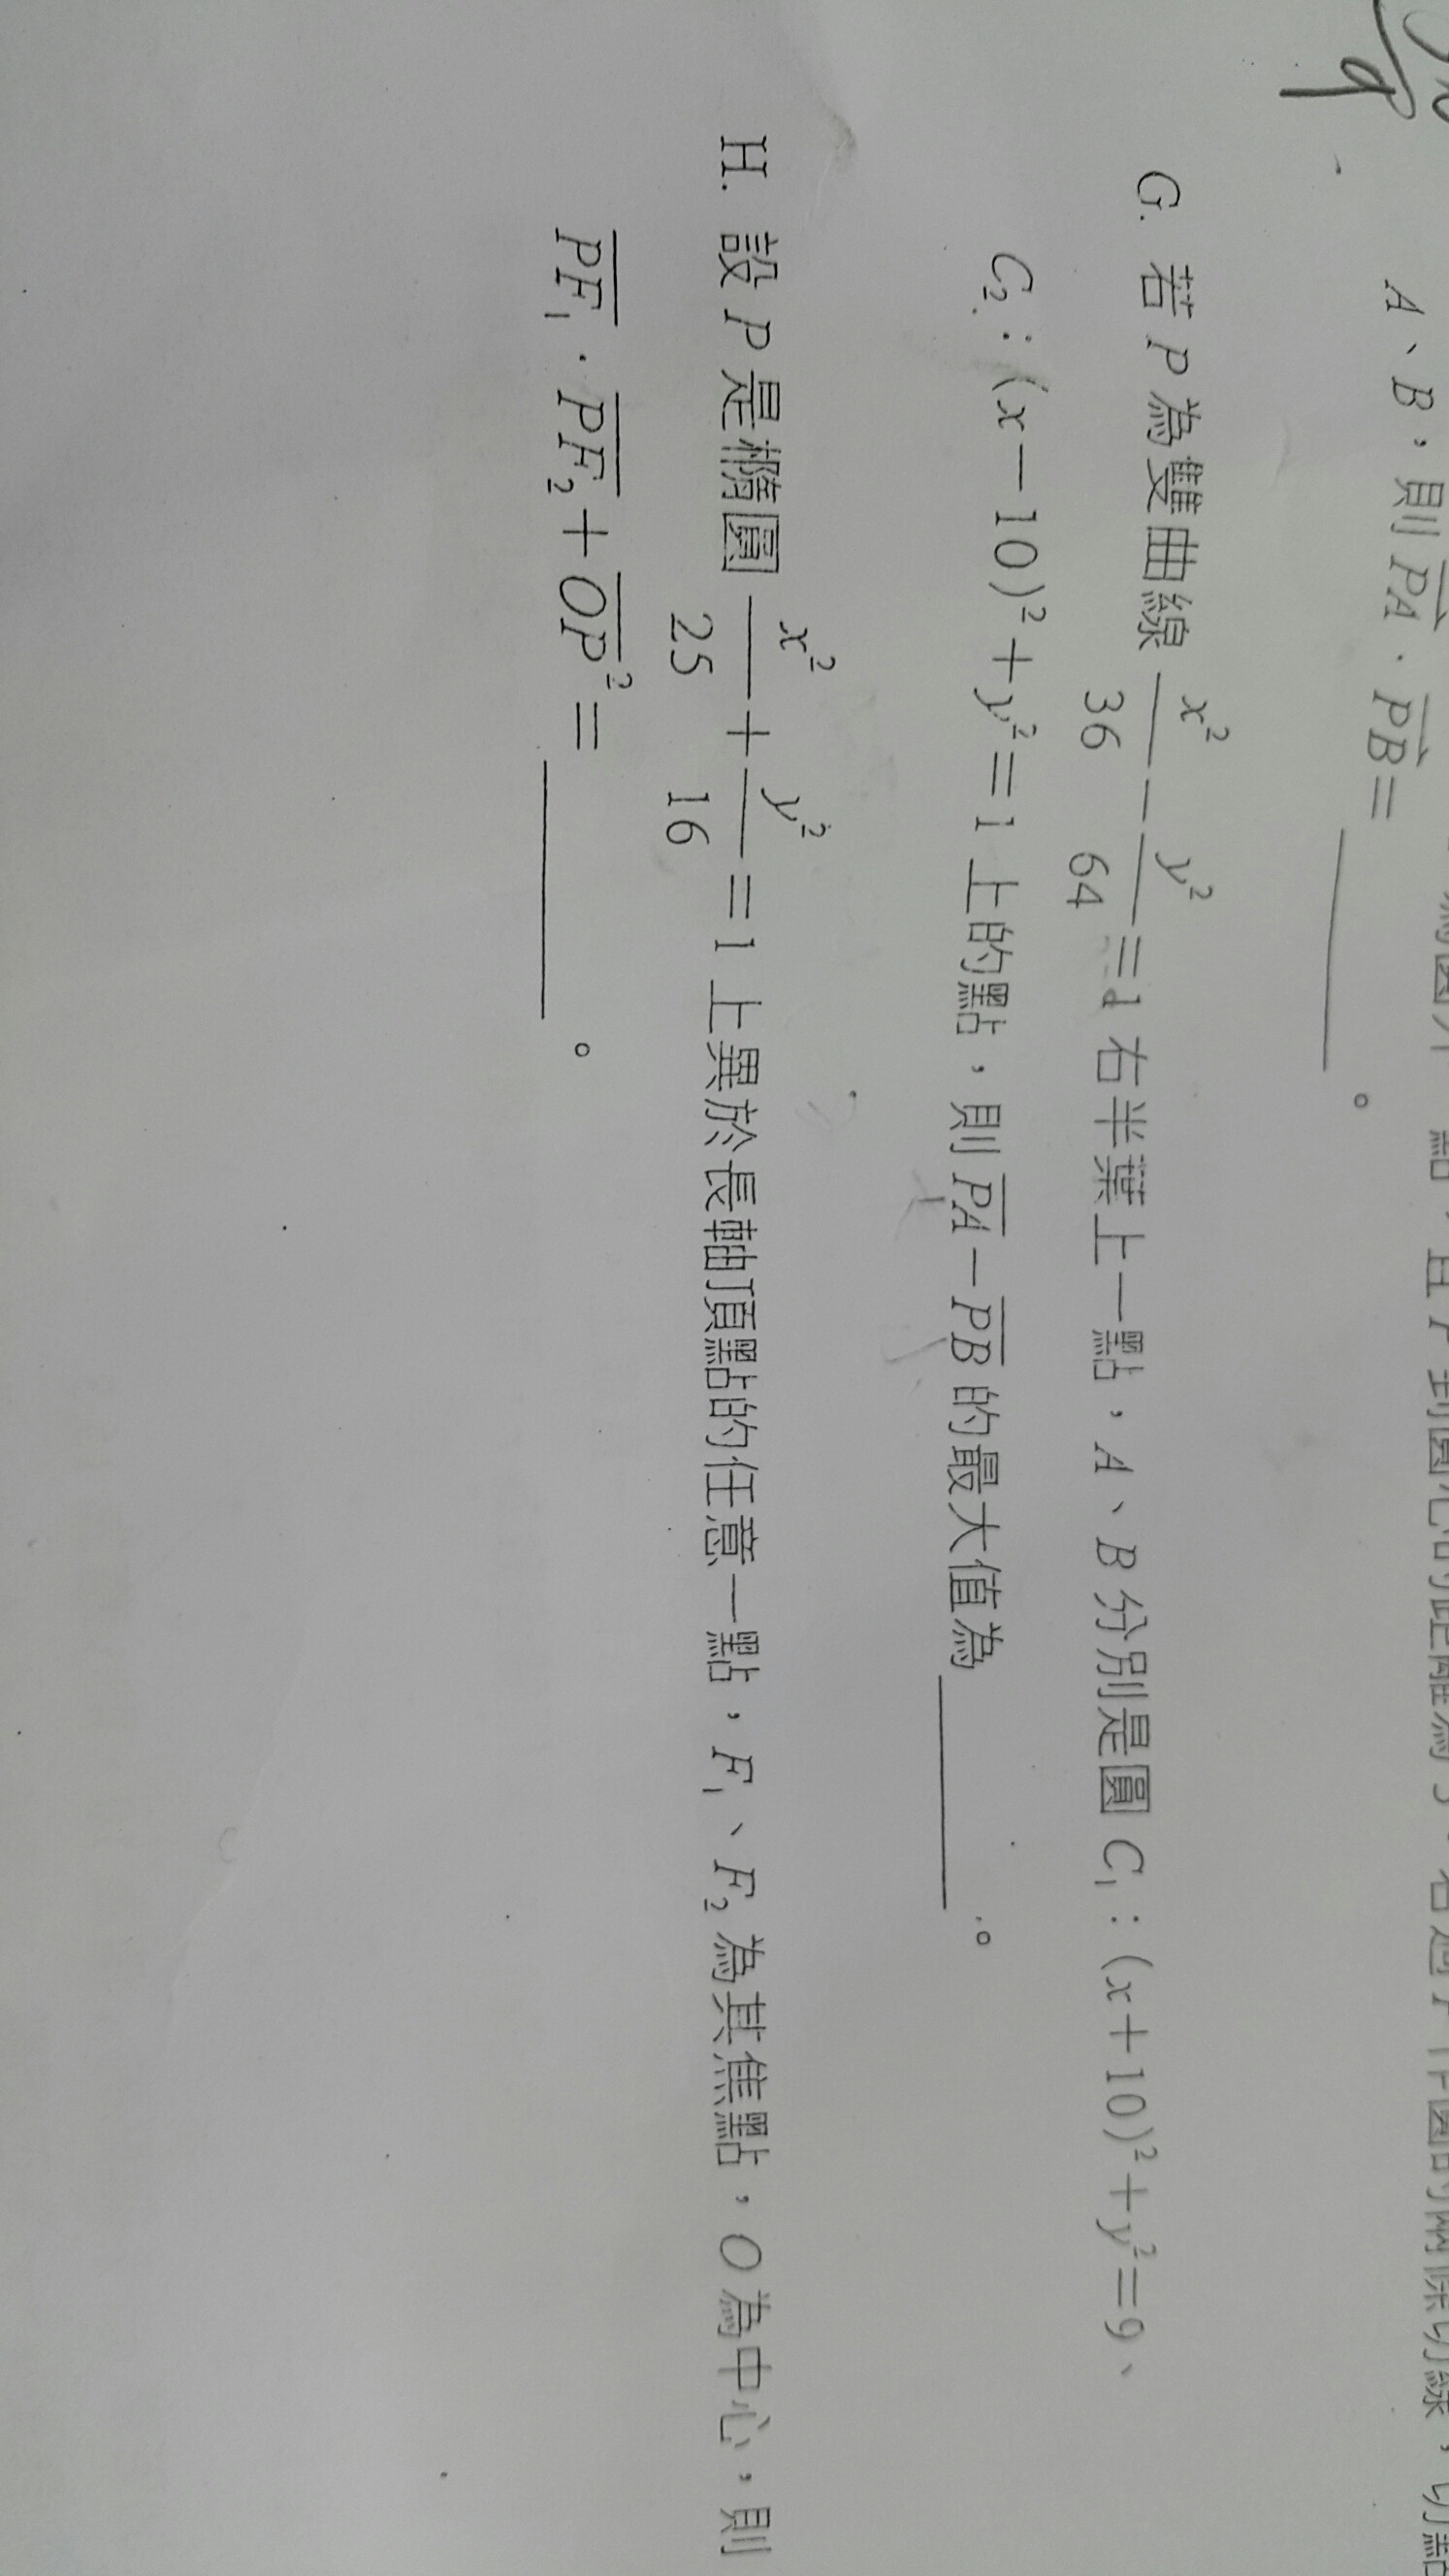 點,且P到圓心的距離為5,若過P作圓的兩條切線,切點
A、B,則PA·PB=______。
G. 若P為雙曲線x²/36-y²/64=1右半葉上一點,A、B分別是圓C₁:(x+10)²+y²=9、
C₂:(x-10)²+y²=1上的點,則PA-PB的最大值為______。
H. 設P是橢圓x²/25+y²/16=1上異於長軸頂點的任意一點,F₁、F₂為其焦點,O為中心,則
PF₁·PF₂+OP²=______。